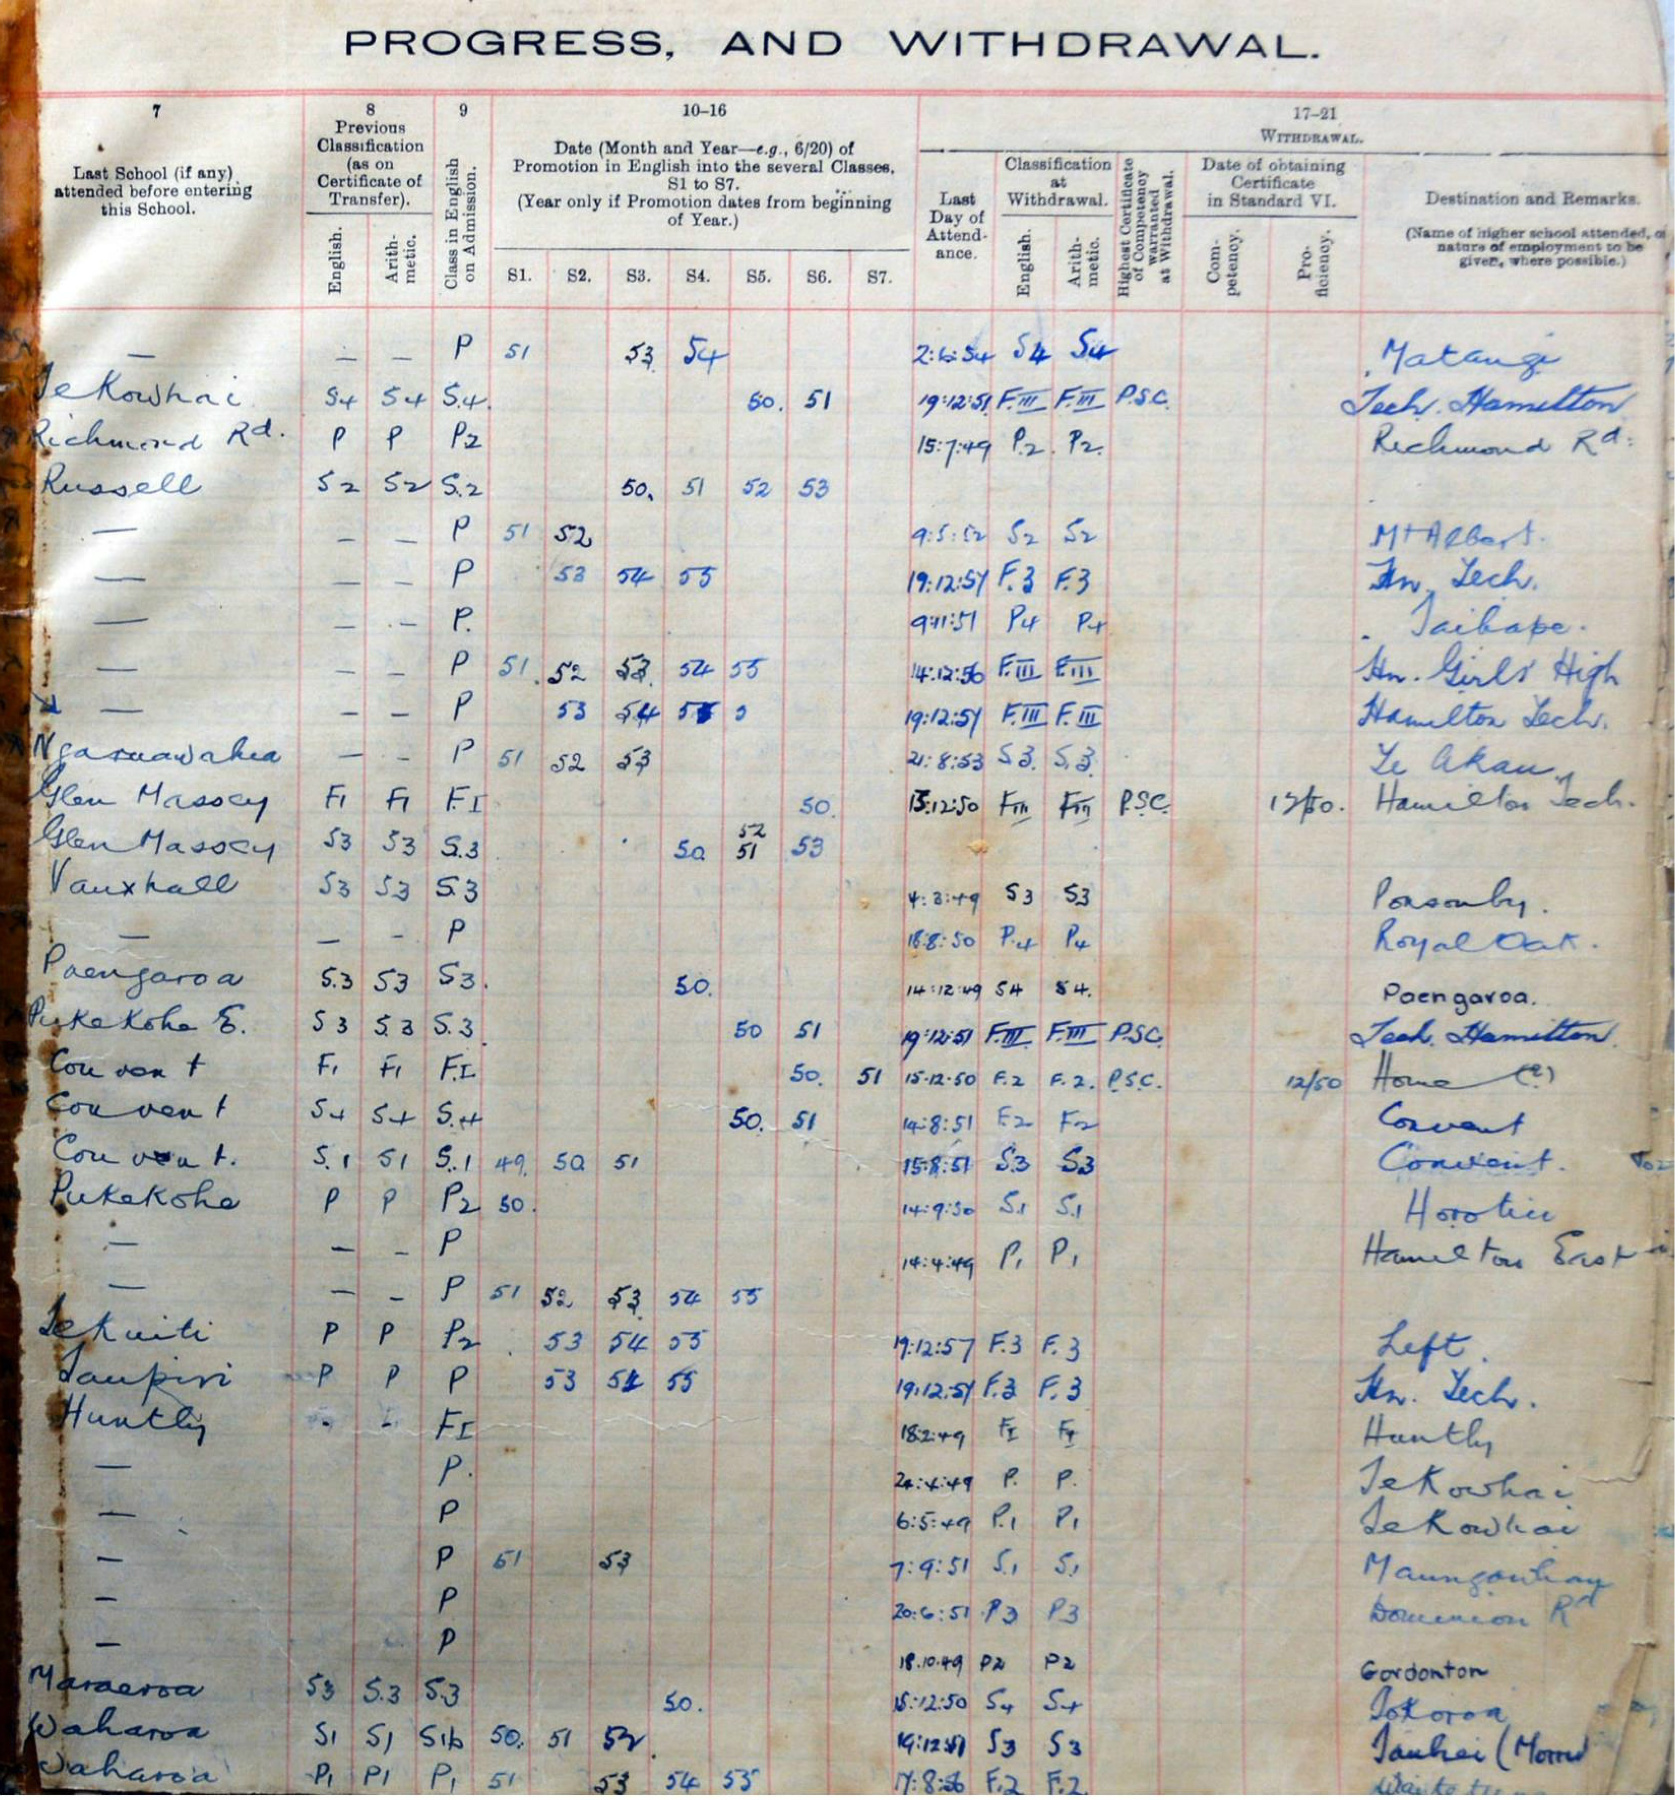 PROGRESS, AND WITHDRAWAL.
7 8 9 10–16 17–21
Last School (if any) attended before entering this School.
Previous Classification (as on Certificate of Transfer).
English. Arithmetic.
Class in English on Admission.
Date (Month and Year—e.g., 6/20) of Promotion in English into the several Classes, S1 to S7.
(Year only if Promotion dates from beginning of Year.)
S1. S2. S3. S4. S5. S6. S7.
WITHDRAWAL.
Last Day of Attendance.
Classification at Withdrawal.
English. Arithmetic.
Highest Certificate of Competency warranted at Withdrawal.
Date of obtaining Certificate in Standard VI.
Competency. Proficiency.
Destination and Remarks.
(Name of higher school attended, or nature of employment to be given, where possible.)
— — — P 51 53 54 2:6:54 S4 S4 Matangi
Te Kowhai S4 S4 S.4. 50. 51 19:12:51 F.III F.III P.S.C. Tech. Hamilton
Richmond Rd. P P P2 15:7:49 P.2. P2. Richmond Rd:
Russell S2 S2 S.2 50. 51 52 53
— — — P 51 52 9:5:52 S2 S2 Mt Albert.
— — — P 53 54 55 19:12:57 F.3 F.3 Hn. Tech.
— — — P. 9:11:51 P4 P4 Taihape.
— — — P 51. 52 53. 54 55 14:12:56 F.III F.III Hn. Girls' High
— — — P 53 54 55 19:12:57 F.III F.III Hamilton Tech.
Ngaruawahia — — P 51 52 53 21:8:53 S3. S.3. Te Akau
Glen Massey F1 F1 F.I 50. 15:12:50 FIII FIII P.S.C. 12/50. Hamilton Tech.
Glen Massey S3 S3 S.3 50 52 51 53
Vauxhall S3 S3 S.3 4:3:49 S3 S3 Ponsonby.
— — — P 18:8:50 P.4 P4 Royal Oak.
Paengaroa S.3 S3 S3. 50. 14:12:49 S4 S4. Paengaroa.
Pukekohe E. S3 S.3 S.3. 50 51 19:12:51 F.III F.III P.S.C. Tech. Hamilton.
Convent F1 F1 F.I 50. 51 15.12.50 F.2 F.2. P.S.C. 12/50 Home (?)
Convent S4 S4 S.4 50. 51 14:8:51 F.2 F2 Convent
Convent. S.1 S1 S.1 49. 50 51 15:8:51 S.3 S3 Convent.
Pukekohe P P P2 50. 14:9:50 S.1 S.1 Horotiu
— — — P 14:4:49 P1 P1 Hamilton East
— — — P 51 52 53 54 55
Te Kuiti P P P2 53 54 55 19:12:57 F.3 F.3 Left.
Taupiri P P P 53 54 55 19:12:57 F.3 F.3 Hn. Tech.
Huntly - - FI 18:2:49 FI FI Huntly
— P. 24:4:49 P. P. Te Kowhai
— P 6:5:49 P.1 P1 Te Kowhai
— P 51 53 7:9:51 S.1 S.1
— P 20:6:51 P3 P3 Dominion Rd
— P 18.10.49 P2 P2 Gordonton
Maraeroa S3 S.3 S.3 50. 15:12:50 S4 S4 Tokoroa
Waharoa S1 S1 S1b 50. 51 52. 19:12:51 S3 S3 Tauhei (Morr
Waharoa P1 P1 P1 51 53 54 55 17:8:56 F.2 F.2